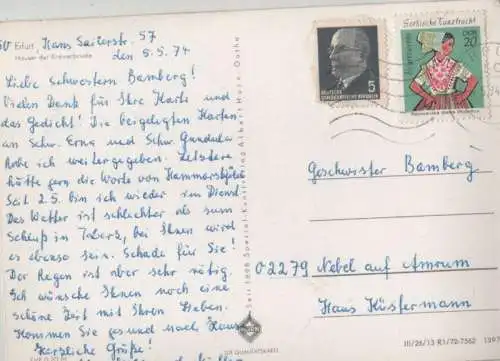 50 Erfurt, Hans Sailerstr. 57
Häuser der Krämerbrücke
den 5.5.74
Liebe Schwestern Bamberg!
Vielen Dank für Ihre Karte und
das Gedicht! Die beigelegten Karten
an Schw. Erna und Schw. Gundula
habe ich weitergegeben. Letztere
hätte gern die Worte von Hammarskjöld
Seit 2.5. bin ich wieder im Dienst
Das Wetter ist schlechter als zum
in bei Ihnen wird
es ebenso sein. Schade für Sie!
Der Regen ist aber sehr nötig.
Ich wünsche Ihnen noch eine
schöne Zeit mit Ihren Lieben.
Kommen Sie gesund nach Haus
Herzliche Grüße!
Seit 1898 Spezial-Kunstverlag Albert Gotha
DEUTSCHE
DEMOKRATISCHE REPUBLIK
5
Sorbische Tanztracht
DDR
20
Geschwister Bamberg
02279 Nebel auf Amrum
Haus Küstermann
III/26/13 R1/72-7562 139